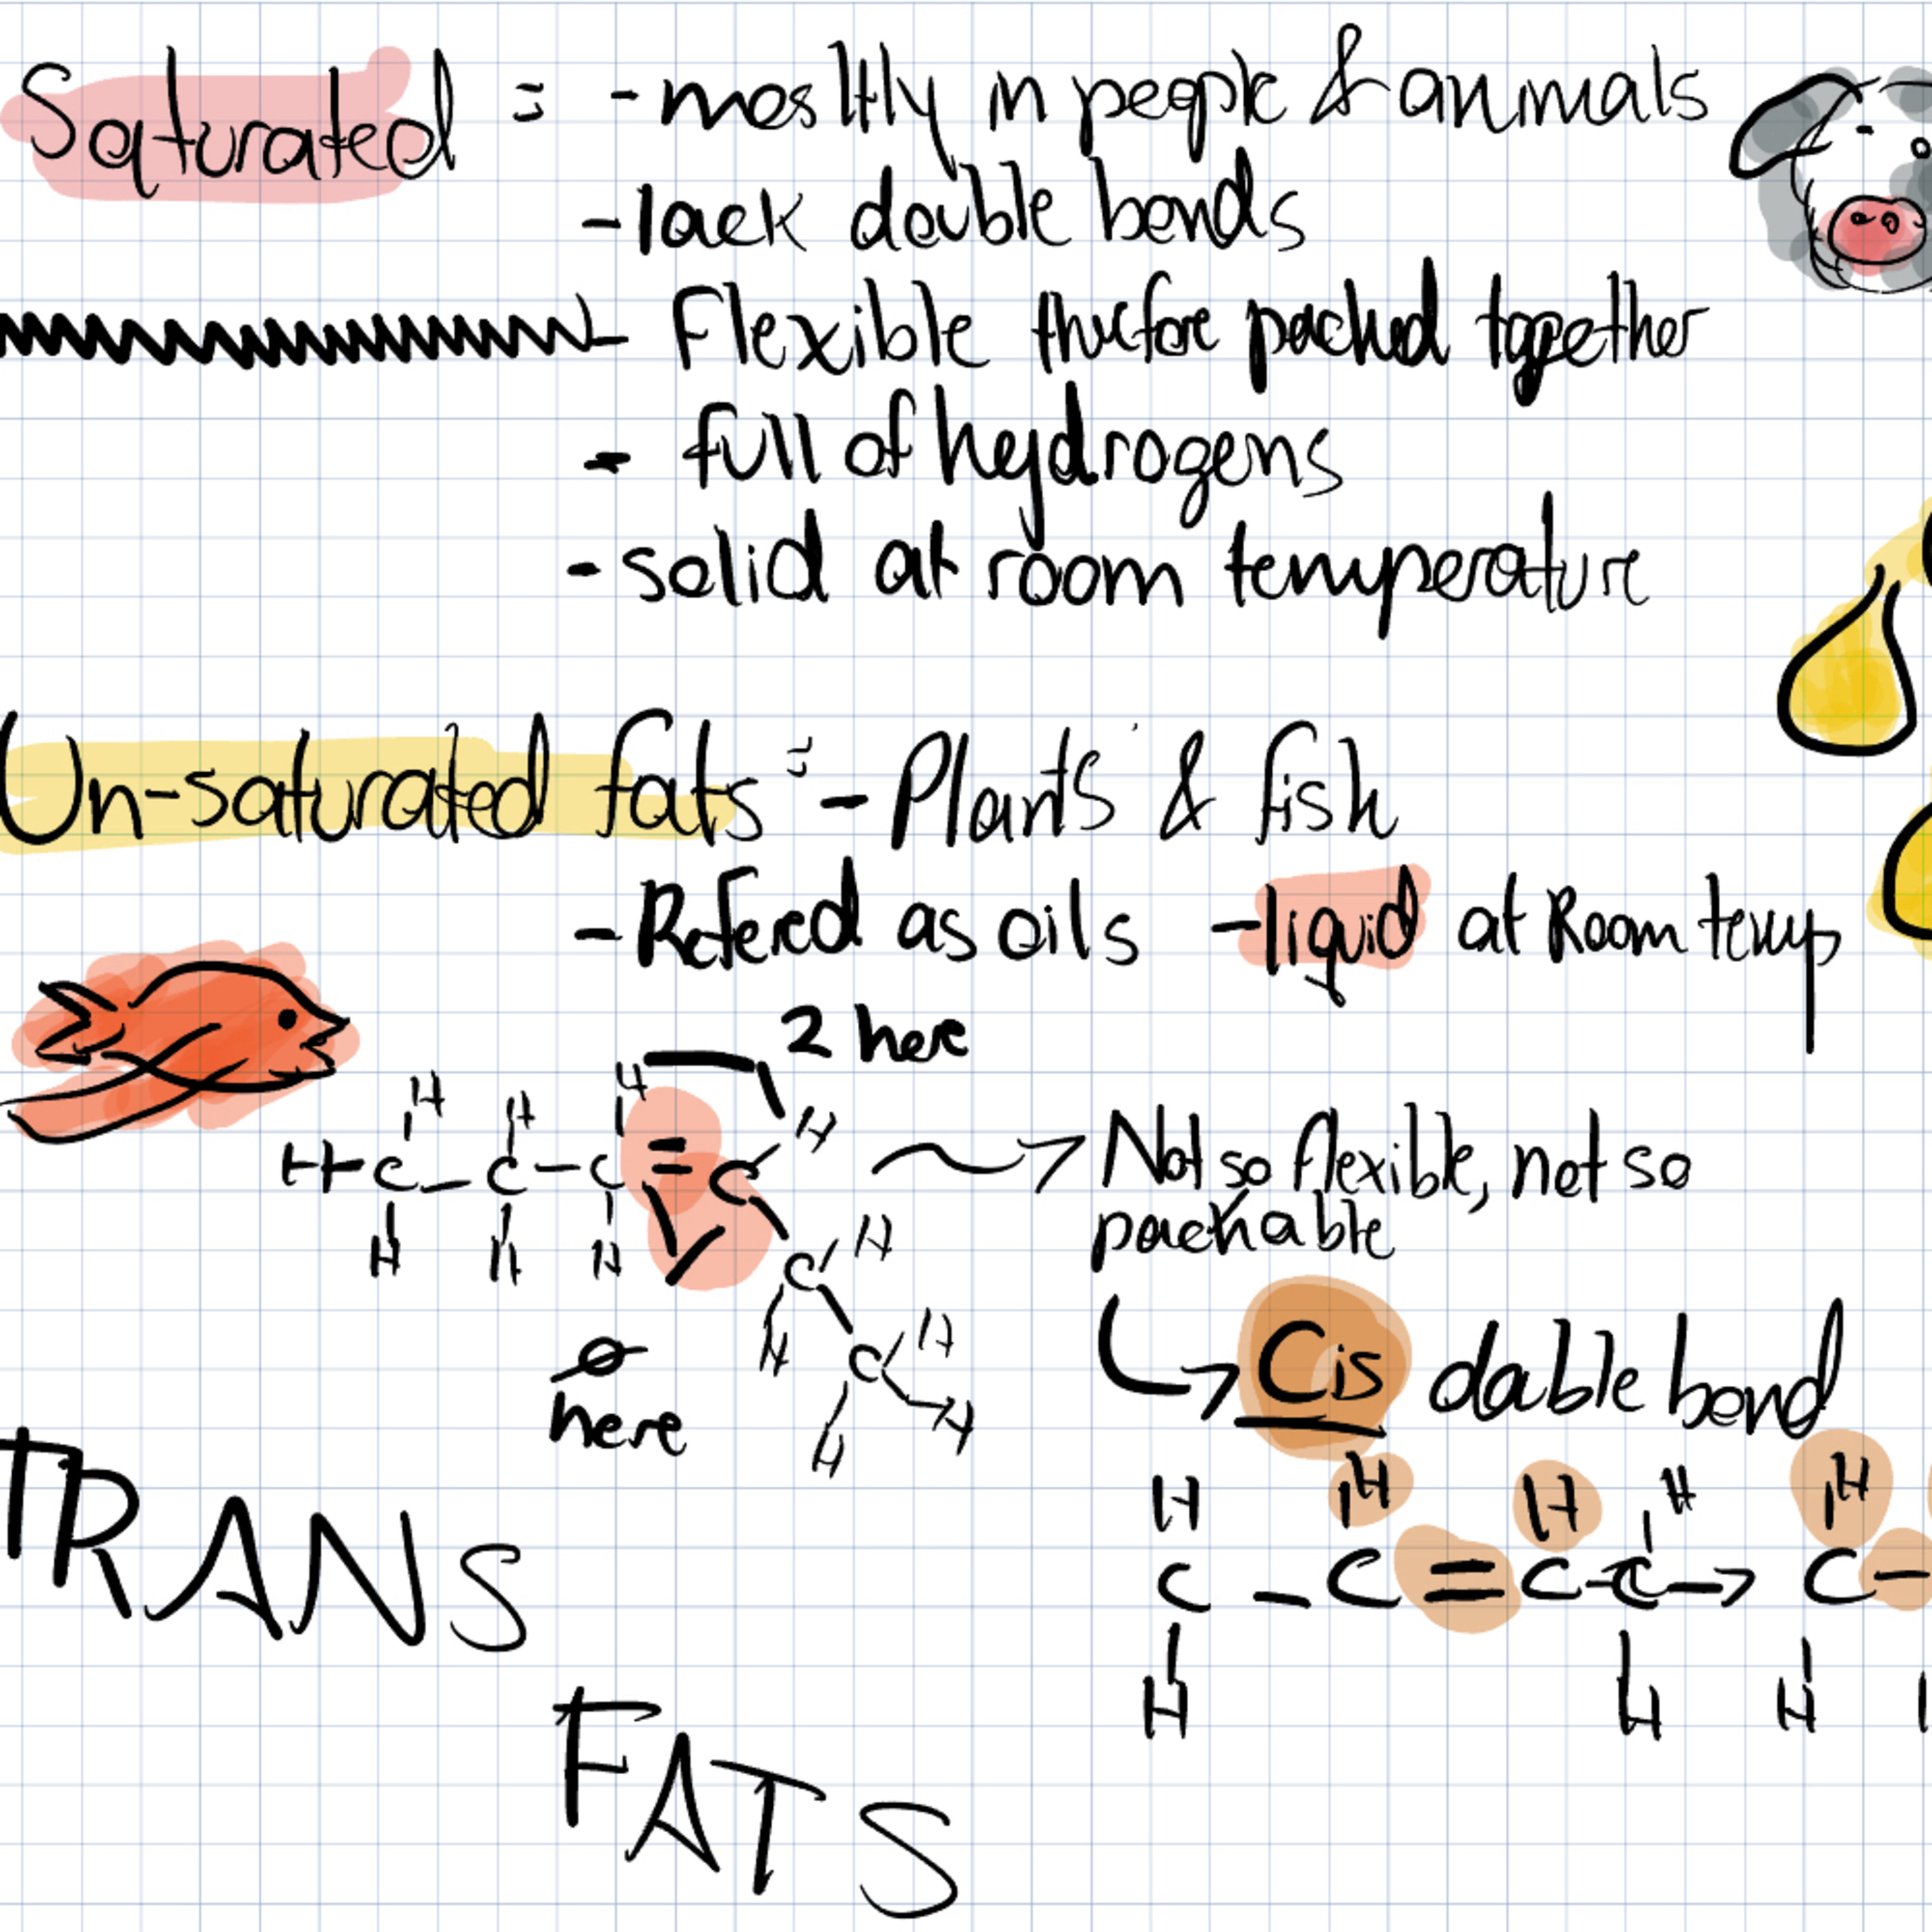 Saturated = - mostly in people & animals
- lack double bonds
- Flexible therefore packed together
- full of hydrogens
- solid at room temperature
Un-saturated fats = - Plants & fish
- Refered as oils - liquid at Room temp
2 here
H H H H
H-C-C-C=C
H H H
C H
H
C H
H H
Ø
here
Not so flexible, not so
packable
Cis double bond
H H H H H
C-C=C-C→C-
H H H
TRANS
FATS